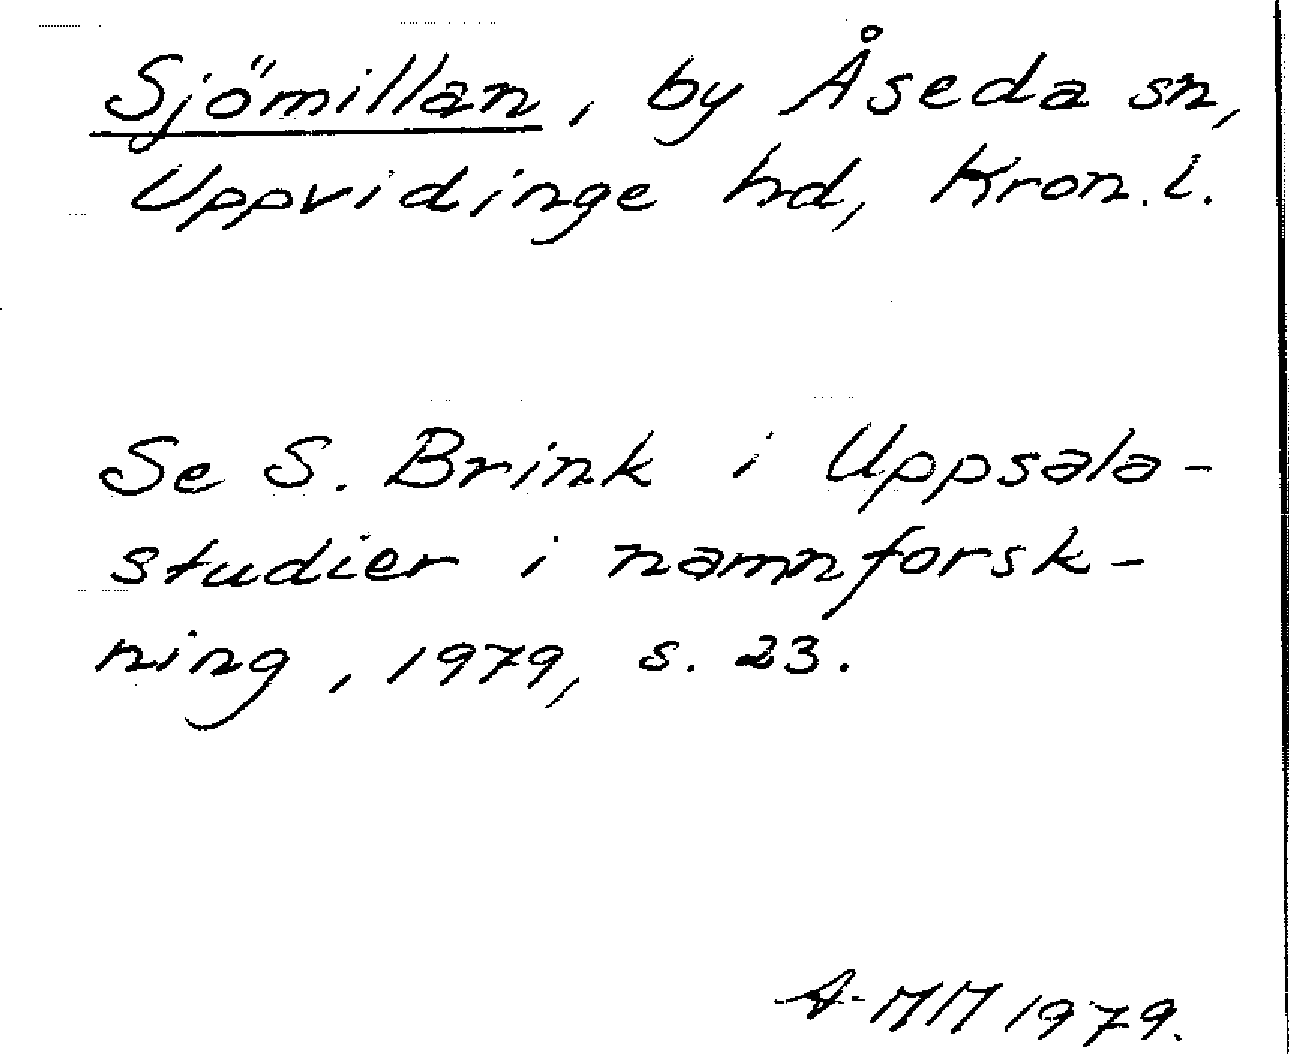 Sjömillan, by Åseda sn,
Uppvidinge hd, Kron.l.
Se S. Brink i Uppsala-
studier i namnforsk-
ning, 1979, s. 23.
A-MM 1979.